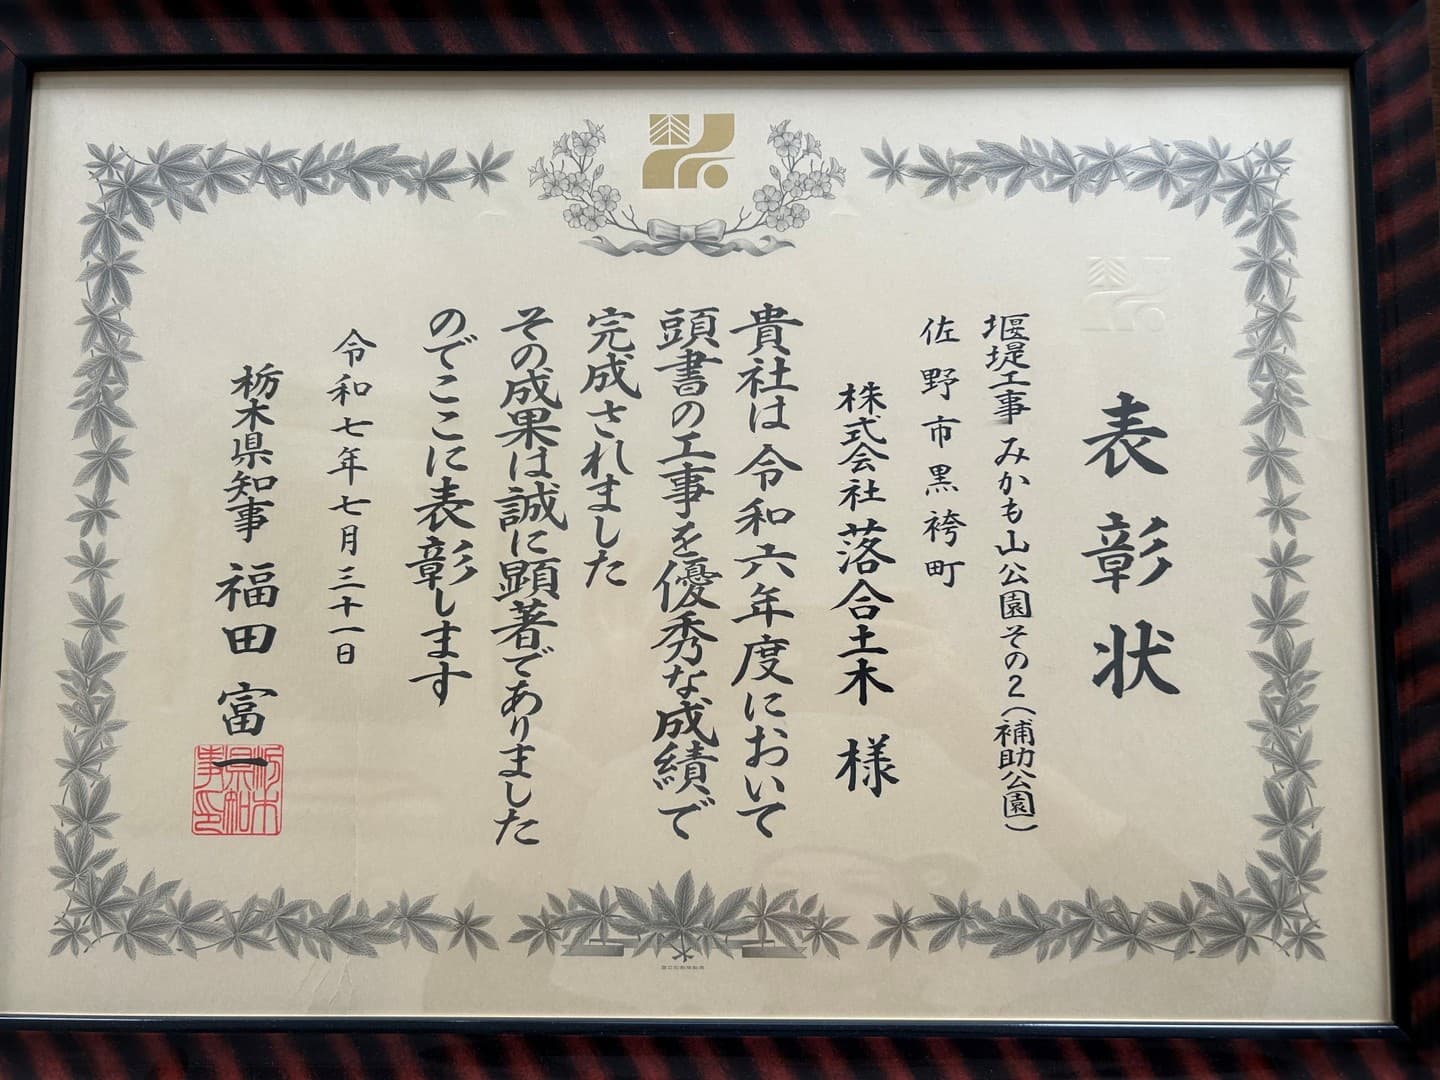 表彰状
堰堤工事 みかも山公園その2(補助公園)
佐野市黒袴町
株式会社 落合土木 様
貴社は令和六年度において
頭書の工事を優秀な成績で
完成されました
その成果は誠に顕著でありました
のでここに表彰します
令和七年七月三十一日
栃木県知事 福田富一
栃木県知事印